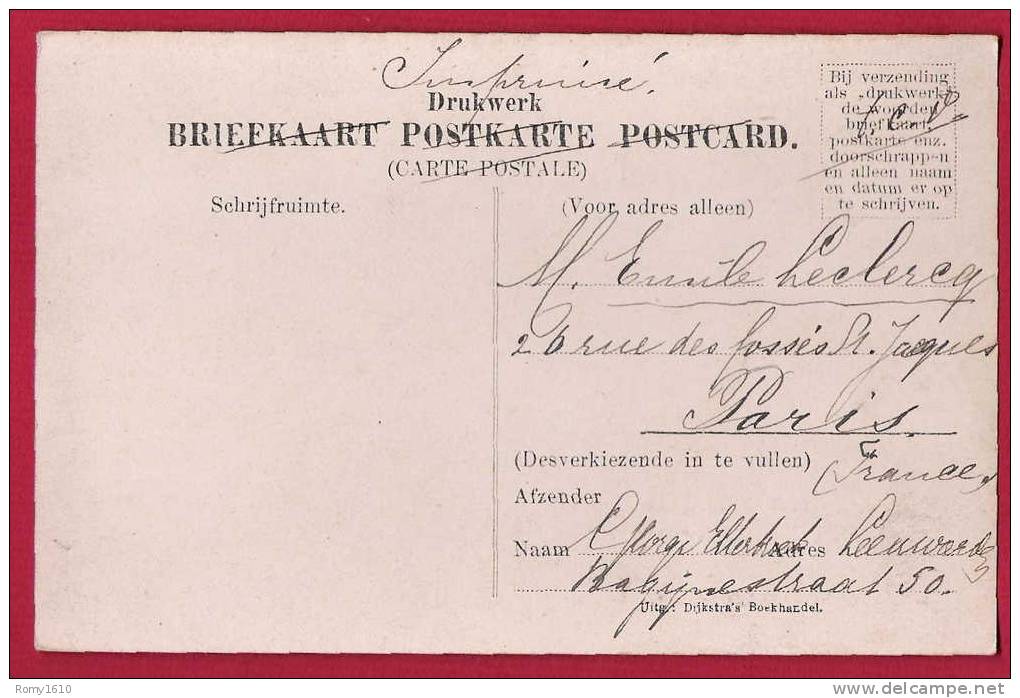 Imprimé.
Drukwerk
BRIEFKAART POSTKARTE POSTCARD.
(CARTE POSTALE)
Bij verzending
als „drukwerk"
de woorden
briefkaart,
postkarte enz.
doorschrappen
en alleen naam
en datum er op
te schrijven.
Schrijfruimte.
(Voor adres alleen)
M. Emile Leclercq
26 rue des fossés St. Jacques
Paris
(Desverkiezende in te vullen)
(France)
Afzender
Naam George Adres Leeuwarden
Bagijnestraat 50.
Uitg.: Dijkstra's Boekhandel.
Romy1610
delcampe.net